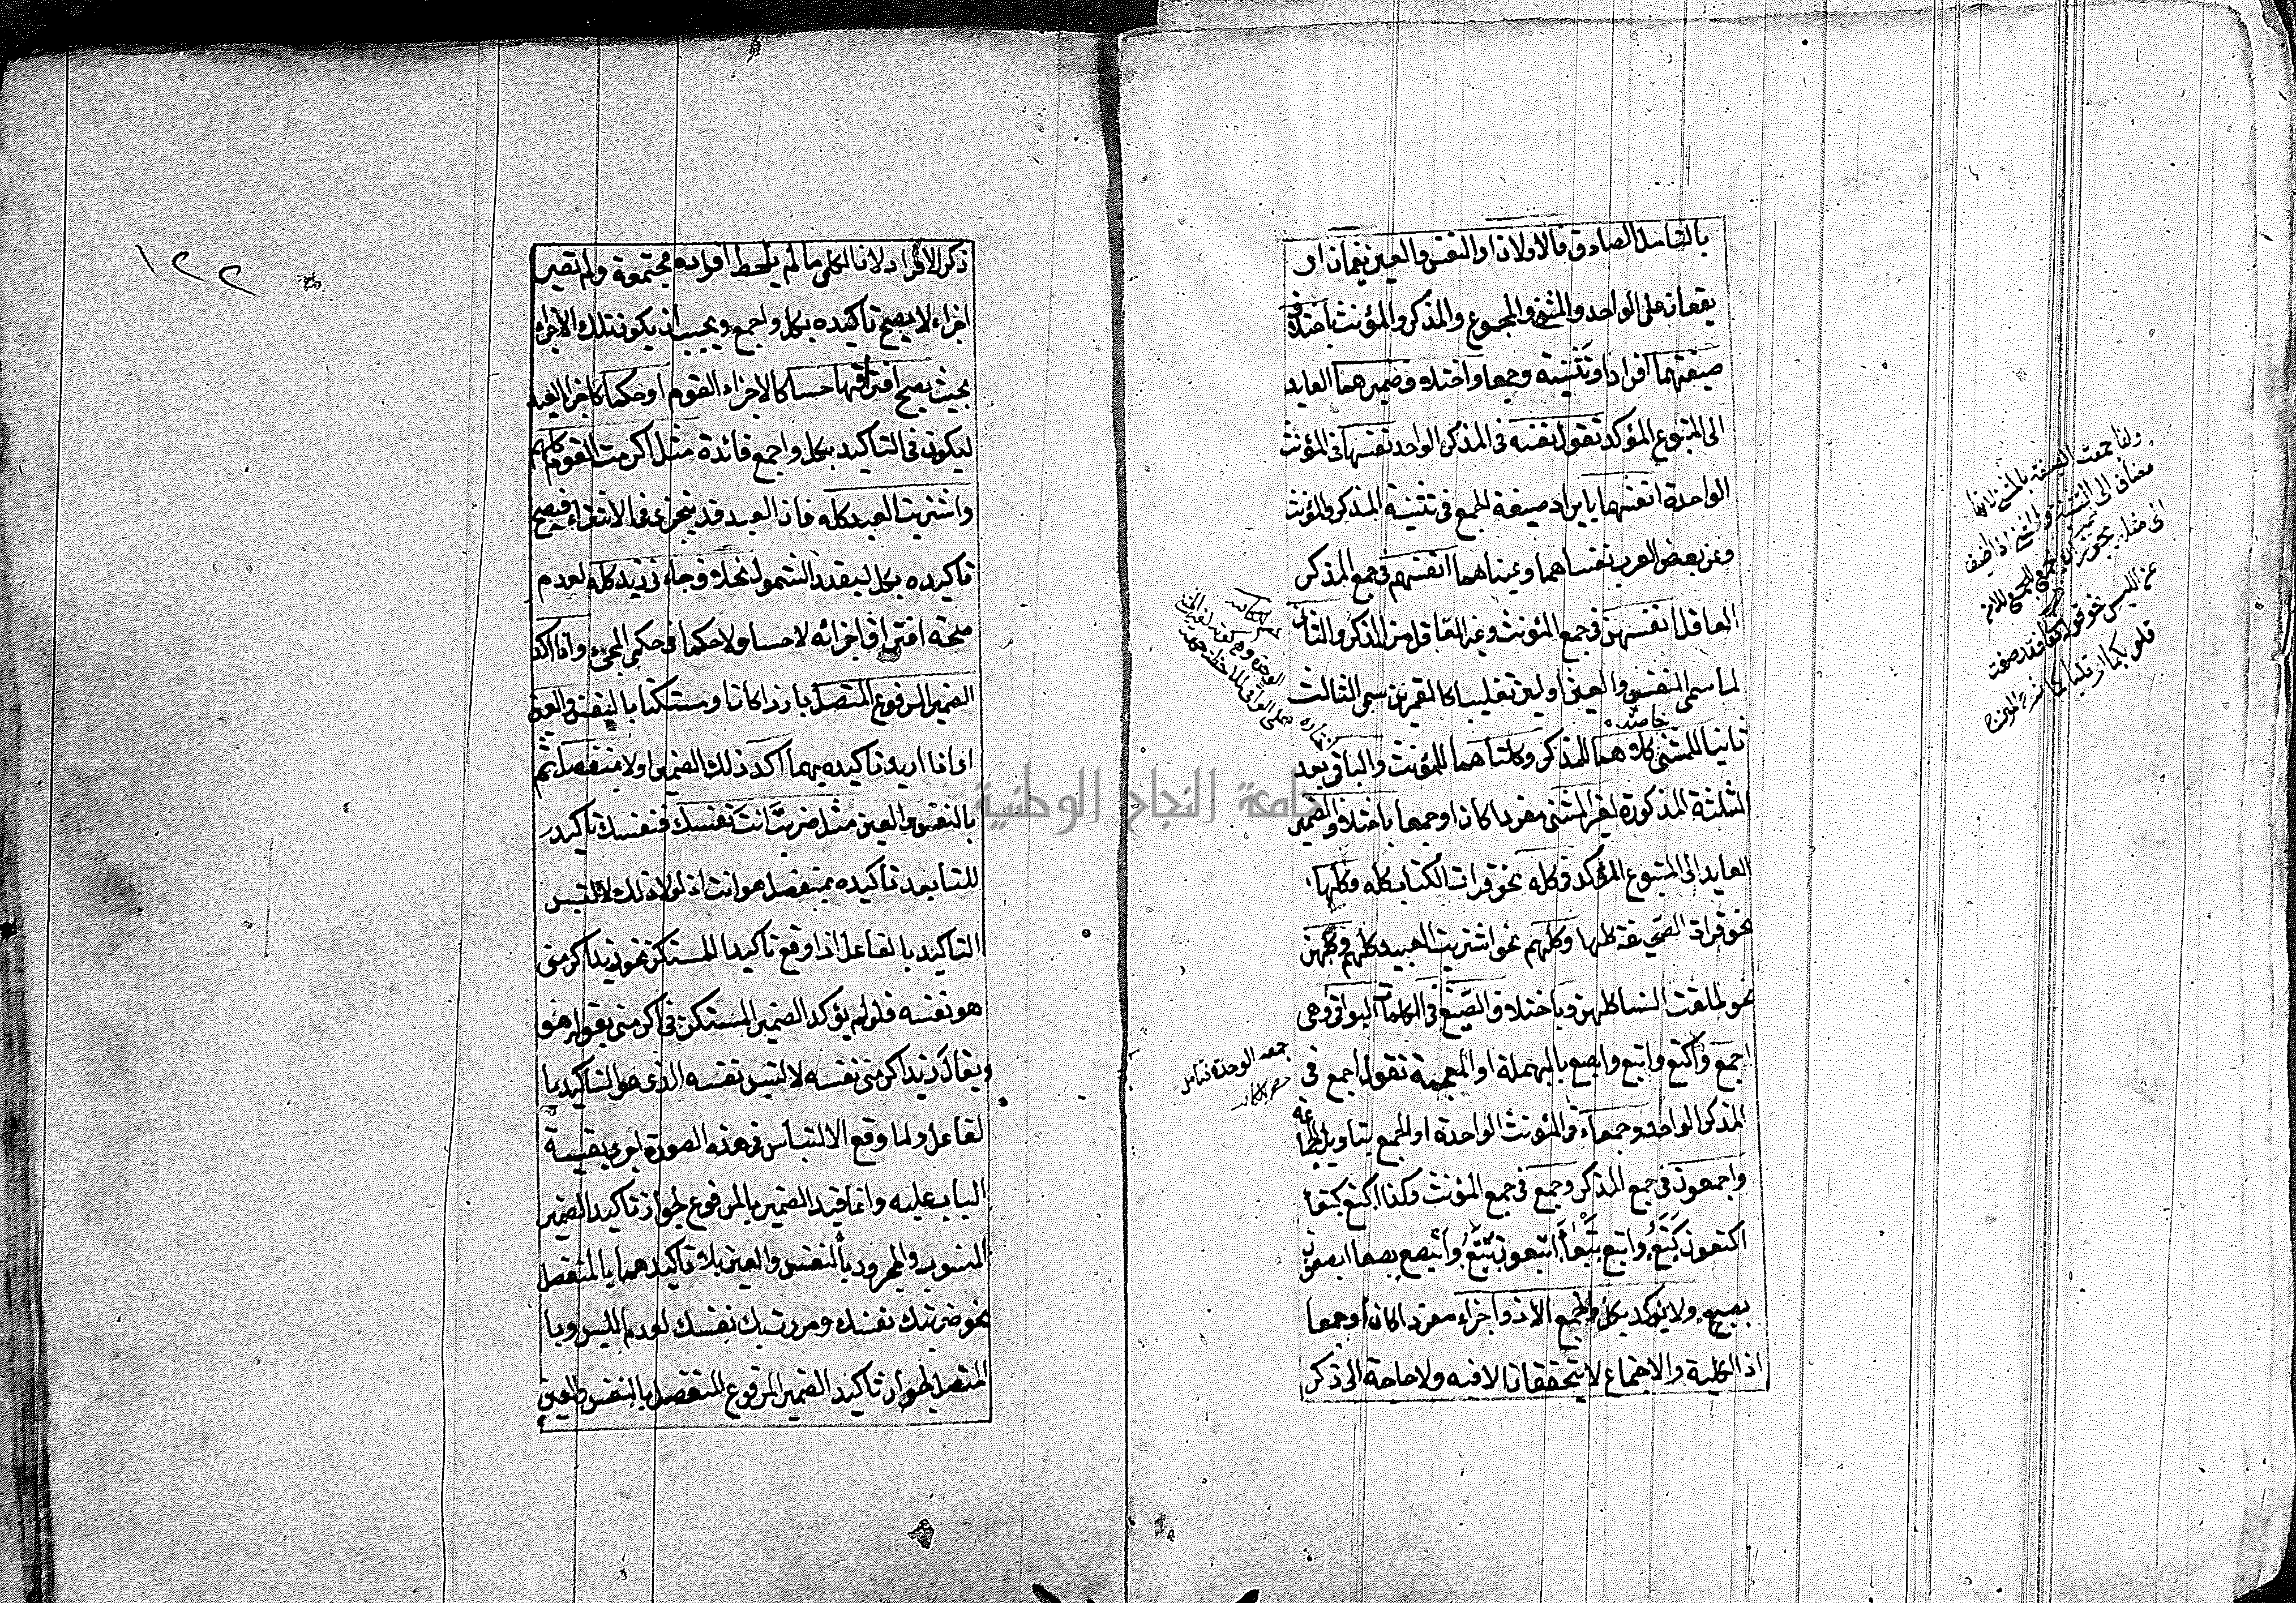 بالتاسل الصادق فالاولان او النفس والعين يعمان ان
يقعان على الواحد والمثنى والمجموع والمذكر والمؤنث باختلاف
صيغتهما افرادا وتثنية وجمعا واختلاف ضميرهما العايد
الى المتبوع المؤكد تقول نفسه في المذكر الواحد نفسها في المؤنث
الواحدة انفسهما بايراد صيغة الجمع في تثنية المذكر والمؤنث
وعن بعض العرب نفساهما وعيناهما انفسهم في جمع المذكر
العاقل انفسهن في جمع المؤنث وغير العاقل من المذكر والثانى
لما سمى النفس والعين اولين تغليبا كالقمرين سمى الثالث
ثانيا للمثنى خاصة كلاهما للمذكر وكلتاهما للمؤنث والباقى بعد
الثلثة المذكورة لغير المثنى مفردا كان او جمعا باختلاف الضمير
العايد الى المتبوع المؤكد في كله نحو قرات الكتاب كله وكلها
نحو قرات الصحيفة كلها وكلهم نحو اشتريت العبيد كلهم وكلهن
نحو طلقت النسا كلهن وباختلاف الصيغ في الكلمات البواقى وهى
اجمع واكتع وابتع وابصع بالمهملة او المعجمة تقول اجمع في
المذكر الواحد وجمعاء في المؤنث الواحدة او الجمع بتاويل الجماعة
واجمعون في جمع المذكر وجمع في جمع المؤنث وكذا اكتع كتعا
اكتعون كتع وابتع بتعا ابتعون بتع وابصع بصعا ابصعون
بصع ولا يؤكد بكل واجمع الا ذو اجزاء مفردا كان او جمعا
اذ الكلية والاجتماع لا يتحققان الا فيه ولا حاجة الى ذكر
جمعه الوحدة فتامل
١٢٢
ذكر الافراد لان الكلى ما لم يلحظ افراده مجتمعة ولم تصير
اجزاء لا يصح تاكيده بكل واجمع ويجب ان يكون تلك الاجزاء
بحيث يصح افتراقها حسا كالاجزاء القوم او حكما كاجزا العبد
ليكون في التاكيد بكل واجمع فائدة مثل اكرمت القوم كلهم
واشتريت العبد كله فان العبد قد يتجزى في الاشتراء فيصح
تاكيده بكل ليفيد الشمول بخلاف جاءنى زيد كله لعدم
صحة افتراق اجزائه لا حسا ولا حكما في حكم المجئ واذا اكد
الضمير المرفوع المتصل بارزا كان او مستكنا بالنفس والعين
اى اذا اريد تاكيده بهما اكد ذلك الضمير اولا بمنفصل ثم
بالنفس والعين مثل ضربت انت نفسك فنفسك تاكيد
للتا بعد تاكيده بمنفصل هو انت اذ لولا ذلك لالتبس
التاكيد بالفاعل اذا وقع تاكيدا للمستكن نحو زيد اكرمنى
هو نفسه فلو لم يؤكد الضمير المستكن في اكرمنى بقوله هو
ويقال زيد اكرمنى نفسه لالتبس نفسه الذى هو التاكيد با
لفاعل ولما وقع الالتباس في هذه الصورة اجرى بقية
الباب عليه وانما قيد الضمير بالمرفوع لجواز تاكيد الضمير
المنصوب والمجرور بالنفس والعين بلا تاكيدهما بالمنفصل
نحو ضربتك نفسك ومررت بك نفسك لعدم اللبس وبا
المتصل لجواز تاكيد الضمير المرفوع المنفصل بالنفس والعين
جامعة النجاح الوطنية